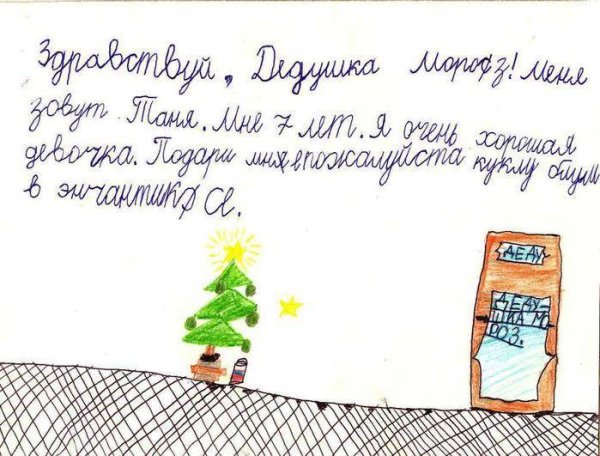 Здравствуй, Дедушка мороз! меня
зовут Таня. Мне 7 лет. Я очень хорошая
девочка. Подари мня пожалуйста куклу блум
в энчантиксе.
ДЕДУ
ДЕДУ-
ШКА МО
РОЗ.